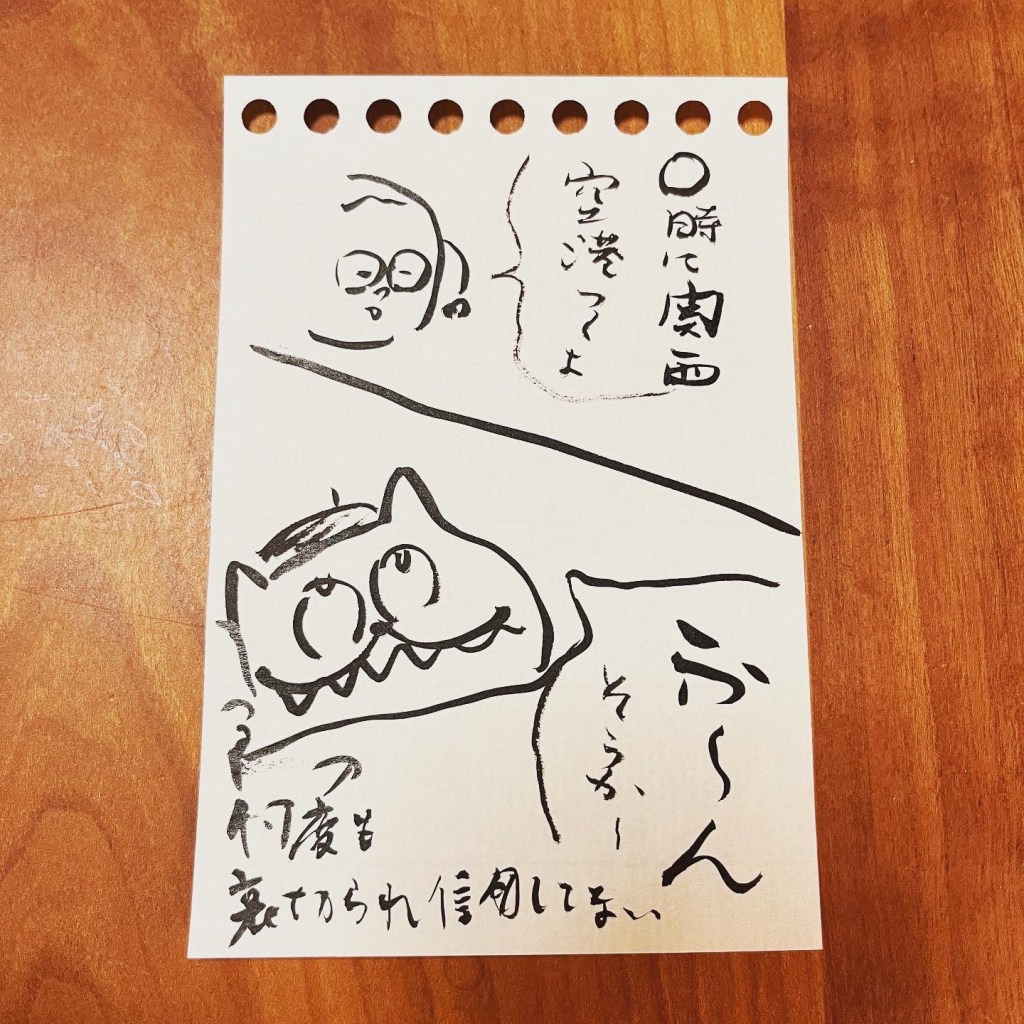 〇時に関西
空港つくよ
ふ〜ん
そうか〜
何度も
裏切られ信用してない